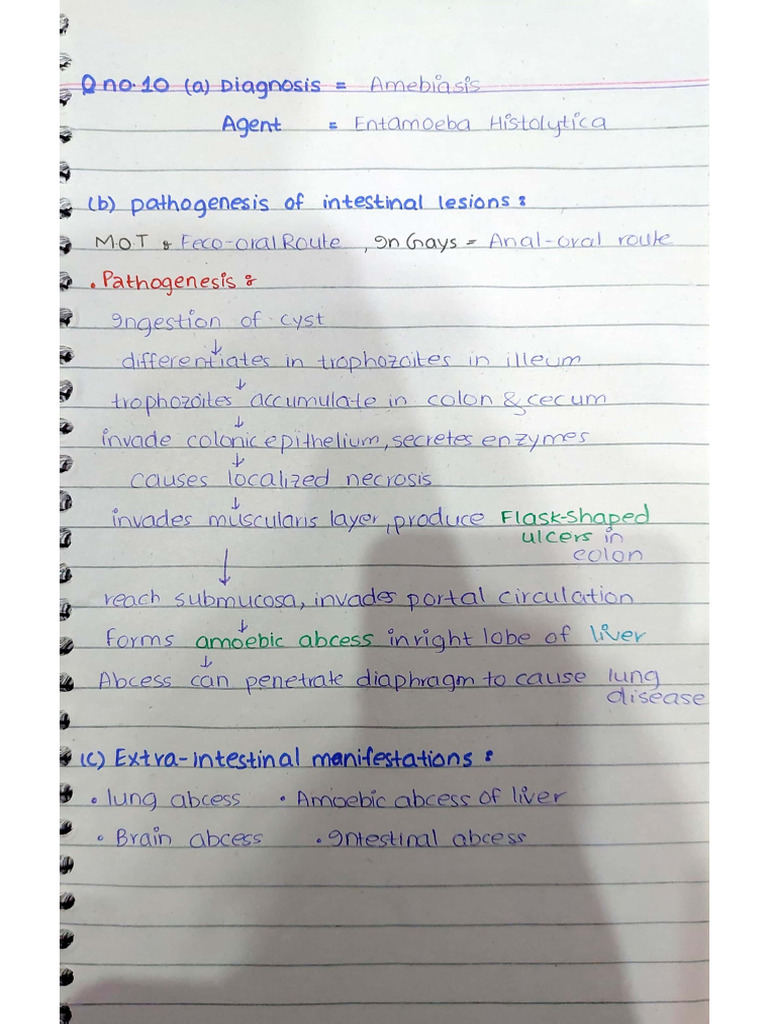 Q no.10 (a) Diagnosis = Amebiasis
Agent = Entamoeba Histolytica
(b) pathogenesis of intestinal lesions :
M.O.T : Feco-oral Route , In Gays = Anal-oral route
• Pathogenesis :
Ingestion of cyst
↓
differentiates in trophozoites in illeum
↓
trophozoites accumulate in colon & cecum
↓
invade colonic epithelium, secretes enzymes
↓
causes localized necrosis
↓
invades muscularis layer, produce Flask-shaped
ulcers in
colon
↓
reach submucosa, invades portal circulation
↓
Forms amoebic abcess in right lobe of liver
↓
Abcess can penetrate diaphragm to cause lung
disease
(c) Extra-intestinal manifestations :
• lung abcess • Amoebic abcess of liver
• Brain abcess • Intestinal abcess